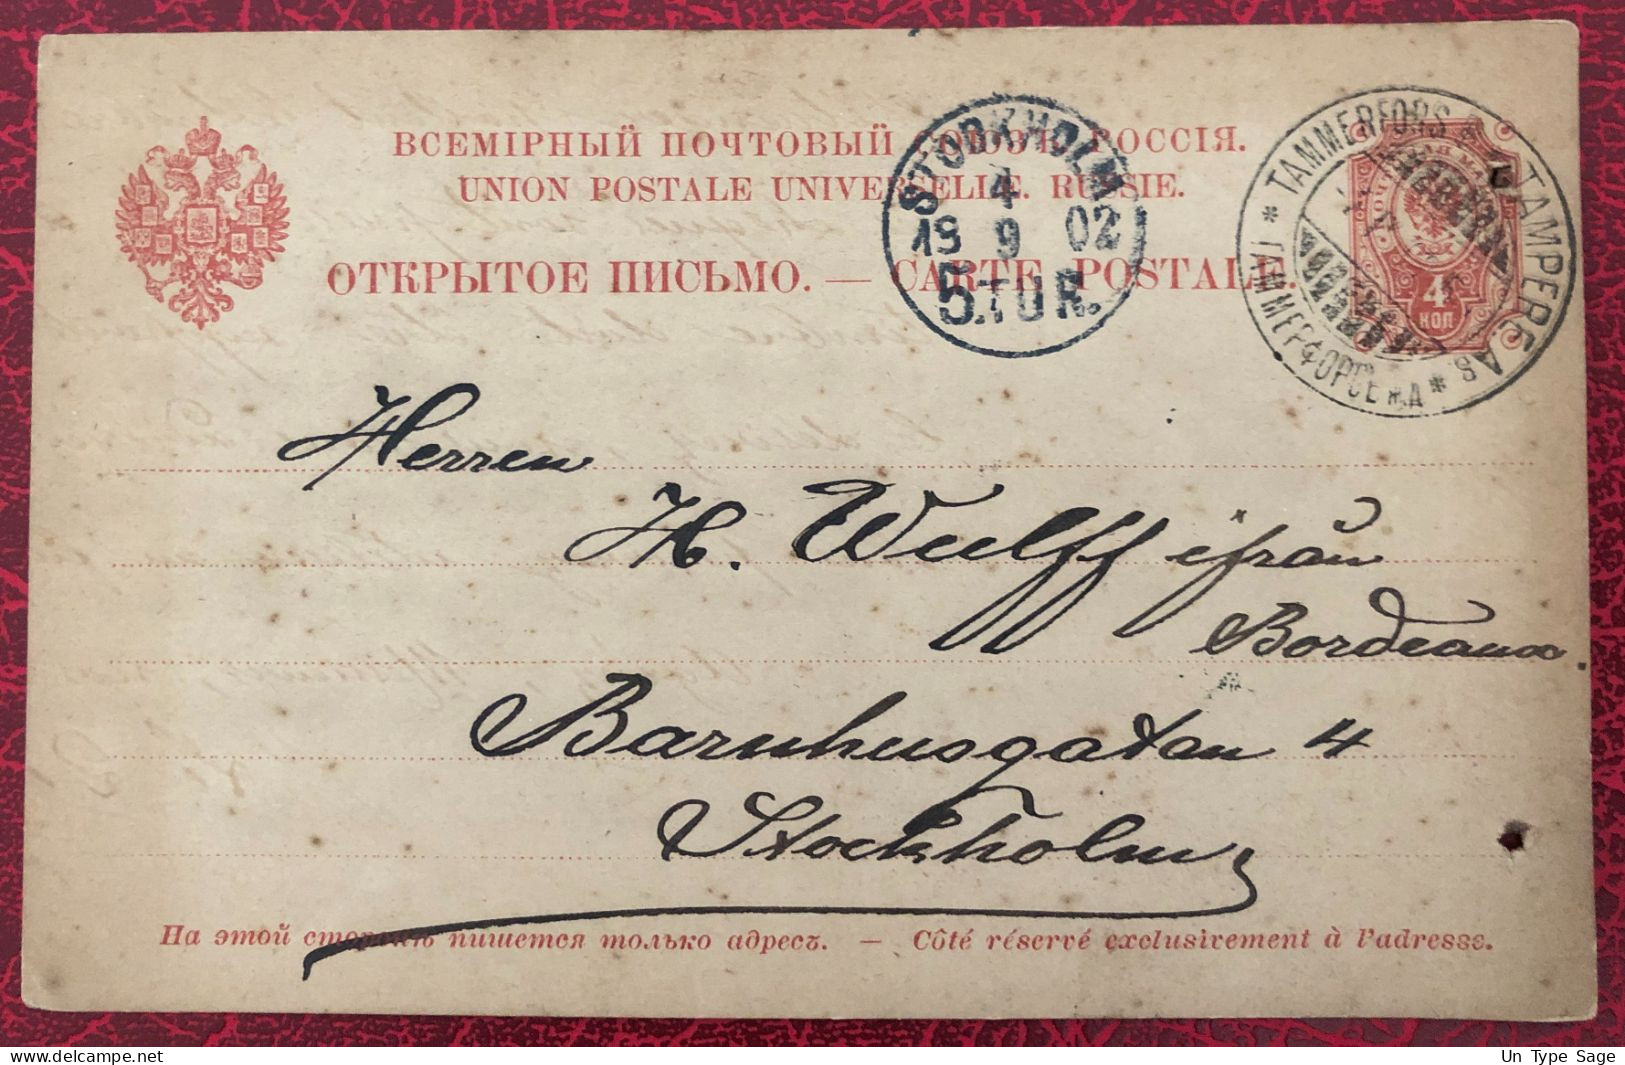 ВСЕМІРНЫЙ ПОЧТОВЫЙ СОЮЗЪ. РОССІЯ.
UNION POSTALE UNIVERSELLE. RUSSIE.
ОТКРЫТОЕ ПИСЬМО. — CARTE POSTALE.
STOCKHOLM
4
19 9 02
5.TUR.
* TAMMERFORS * TAMPERE AS.
* ТАММЕРФОРСЪ ЖД *
4
КОП
Herren
H. Wulff ifrån
Bordeaux.
Barnhusgatan 4
Stockholm
На этой сторонѣ пишется только адресъ. — Côté réservé exclusivement à l'adresse.
Un Type Sage